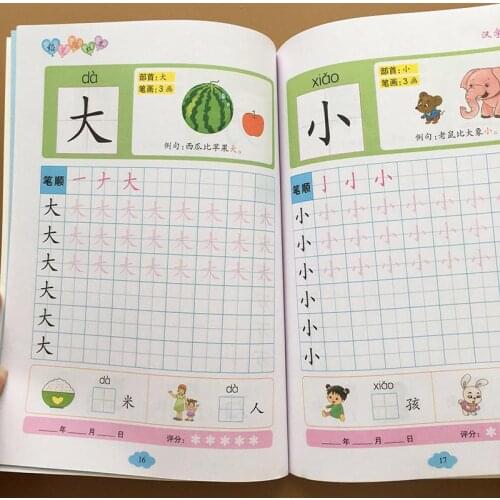 dà
大
部首:大
笔画:3画
例句:西瓜比苹果大。
笔顺 一 ナ 大
大 大 大 大 大 大 大 大 大
大 大 大 大 大 大 大 大 大
大 大 大 大 大 大 大 大 大
大
大
大
米
dà
人
年 月 日 评分:
16
汉字
xiǎo
小
部首:小
笔画:3画
例句:老鼠比大象小
笔顺 亅 小 小
小 小 小 小 小 小 小
小 小 小 小 小 小 小
小 小 小 小 小 小 小
小
小
小
xiǎo
孩
年 月 日 评分:
17